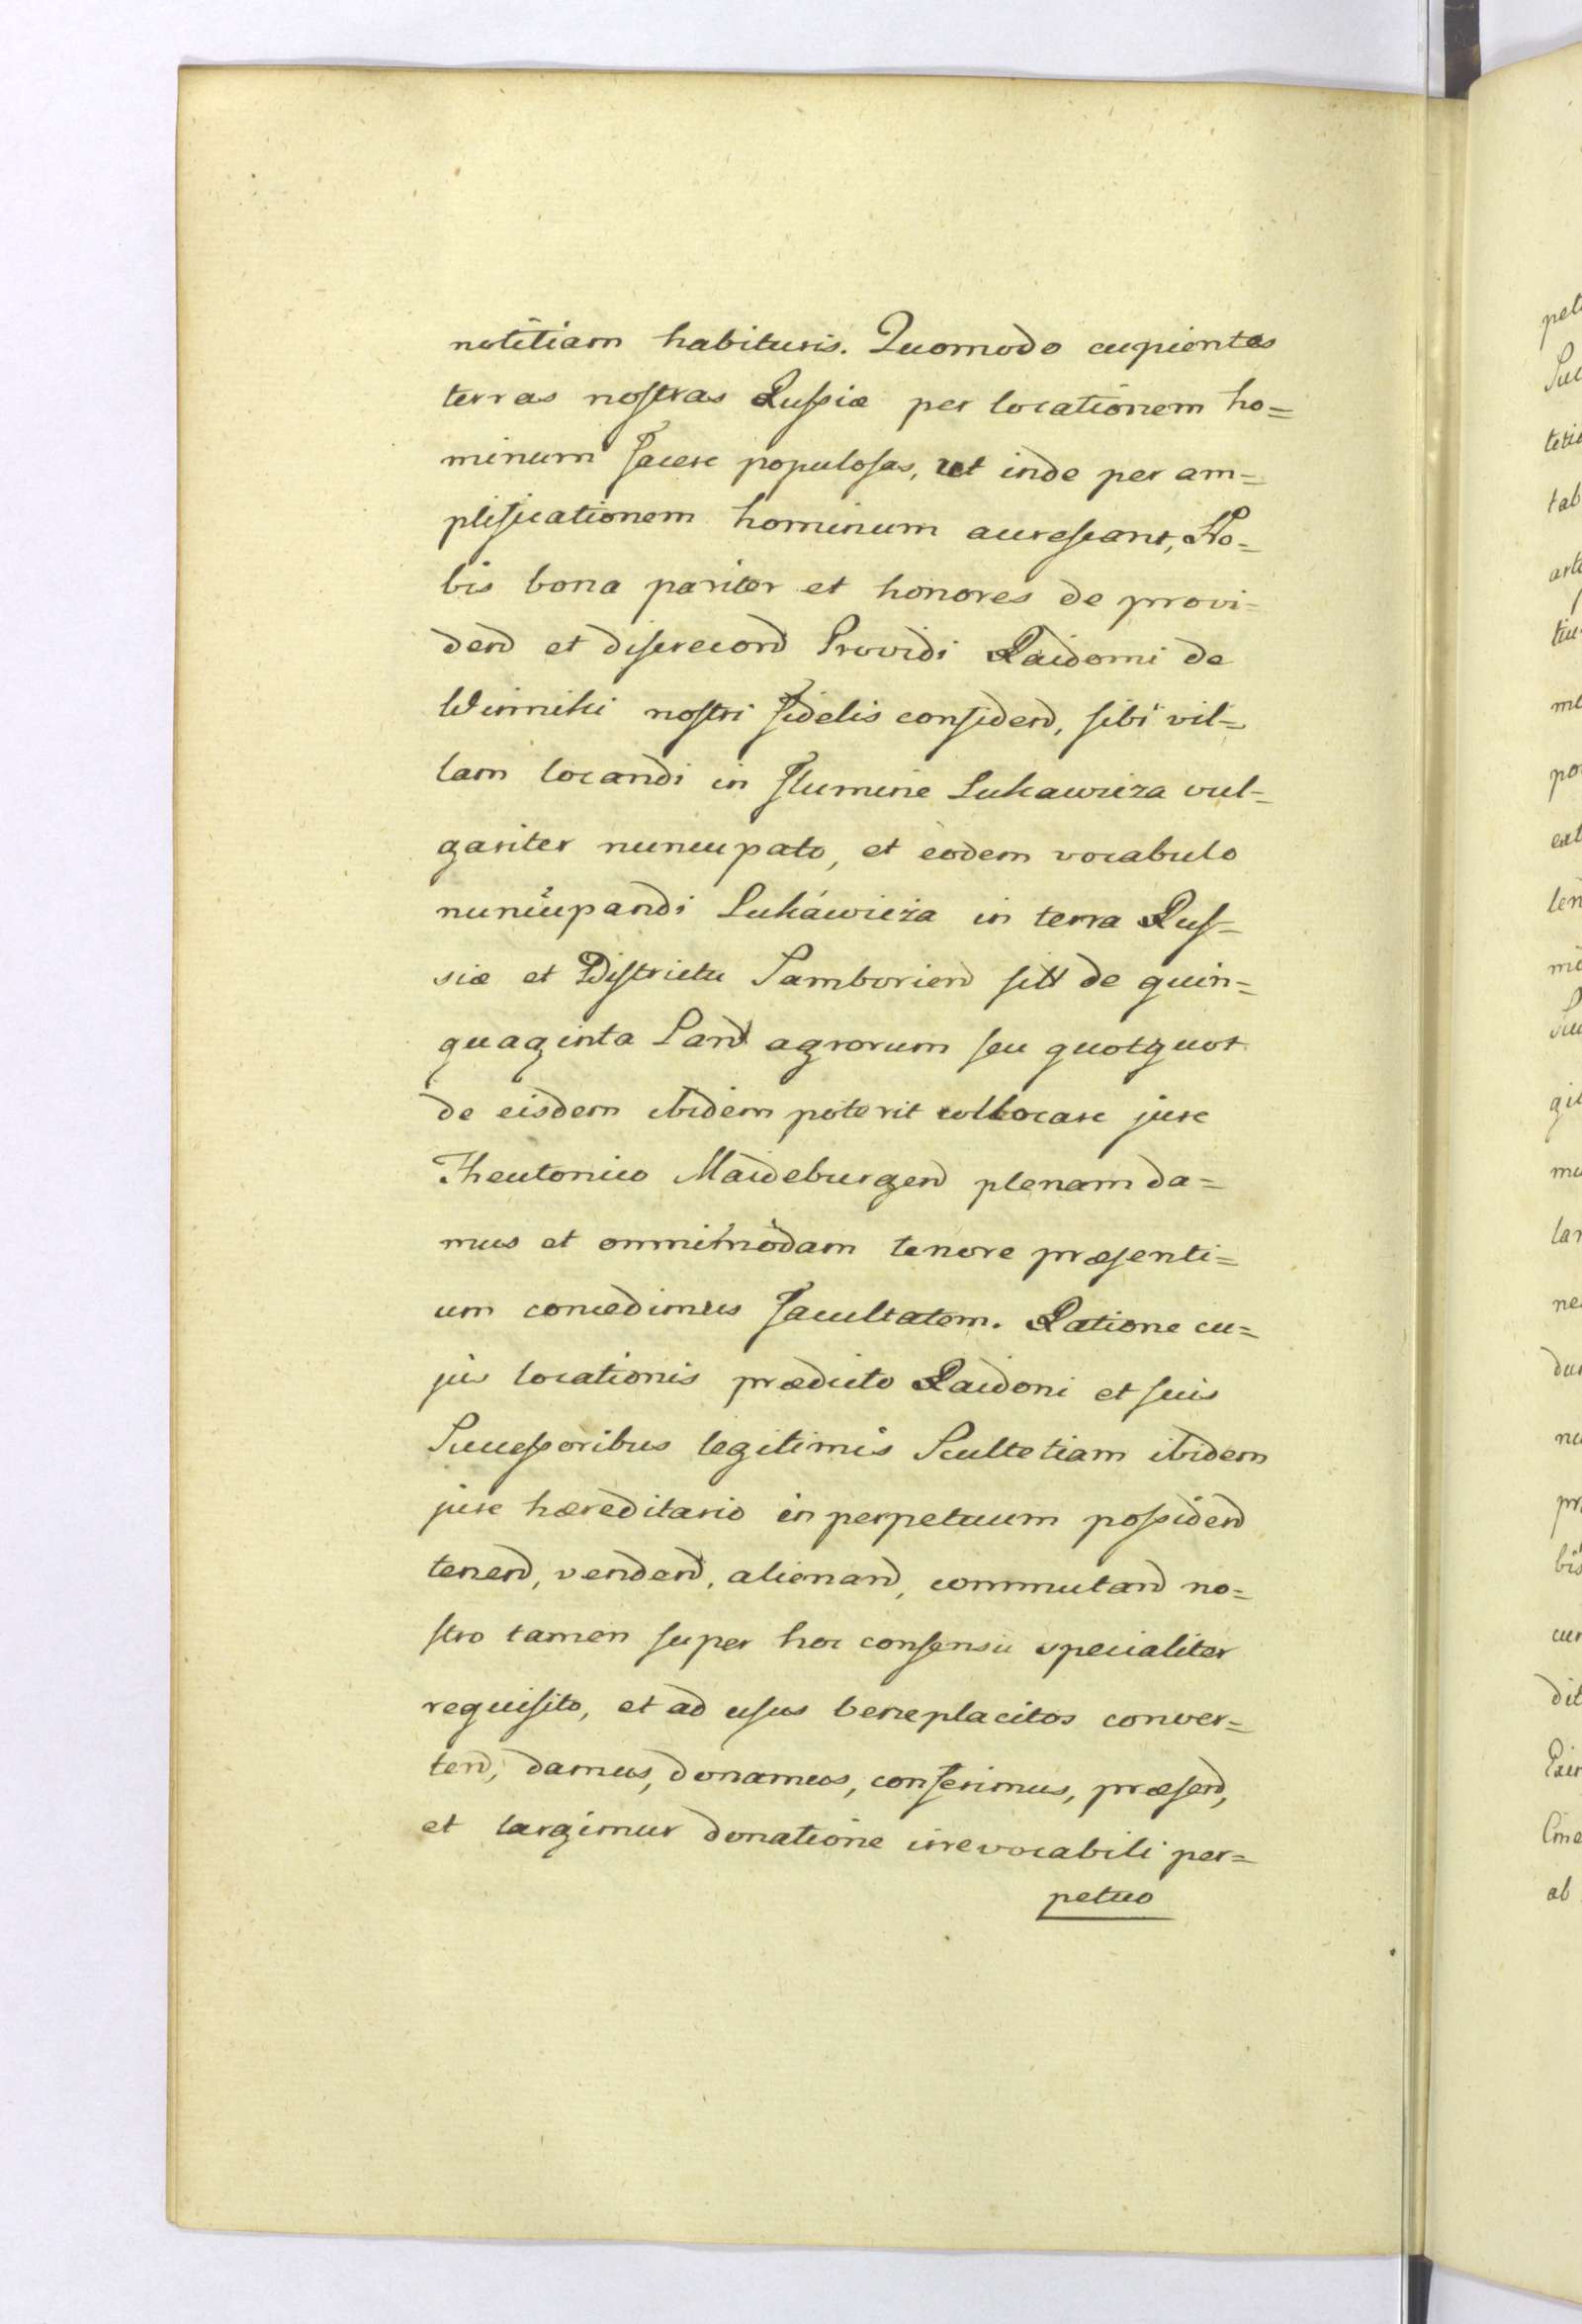 notitiam habituris. Quomodo cupientes
terras nostras Russiæ per locationem ho=
minum facere populosas, ut inde per am=
plificationem hominum accrescant, No=
bis bona pariter et honores de provi=
dend et discrecond Providi Raidomi de
Winniki nostri fidelis confidend, sibi vil=
lam locandi in flumine Lukawieza vul=
gariter nuncupato, et eodem vocabulo
nuncupandi Lukawieza in terra Rus=
siæ et Districtu Samboriend sitt de quin=
quaginta Land agrorum seu quotquot
de eisdem ibidem poterit collocare jure
Theutonico Maideburgend plenam da=
mus et omnimodam tenore præsenti=
um concedimus facultatem. Ratione cu=
jus locationis prædicto Raidoni et suis
Successoribus legitimis Scultetiam ibidem
jure hæreditario in perpetuum possidend
tenend, vendend, alienand, commutand no=
stro tamen super hoc consensu specialiter
requisito, et ad usus beneplacitos conver=
tend, damus, donamus, conferimus, præsend,
et largimur donatione irrevocabili per=
petuo
pet
Suc
tetia
tab
arti
tiu
me
po
ext
len
mo
giu
mu
lar
ne
du
nu
pr
bis
cur
dit
Cme
ab